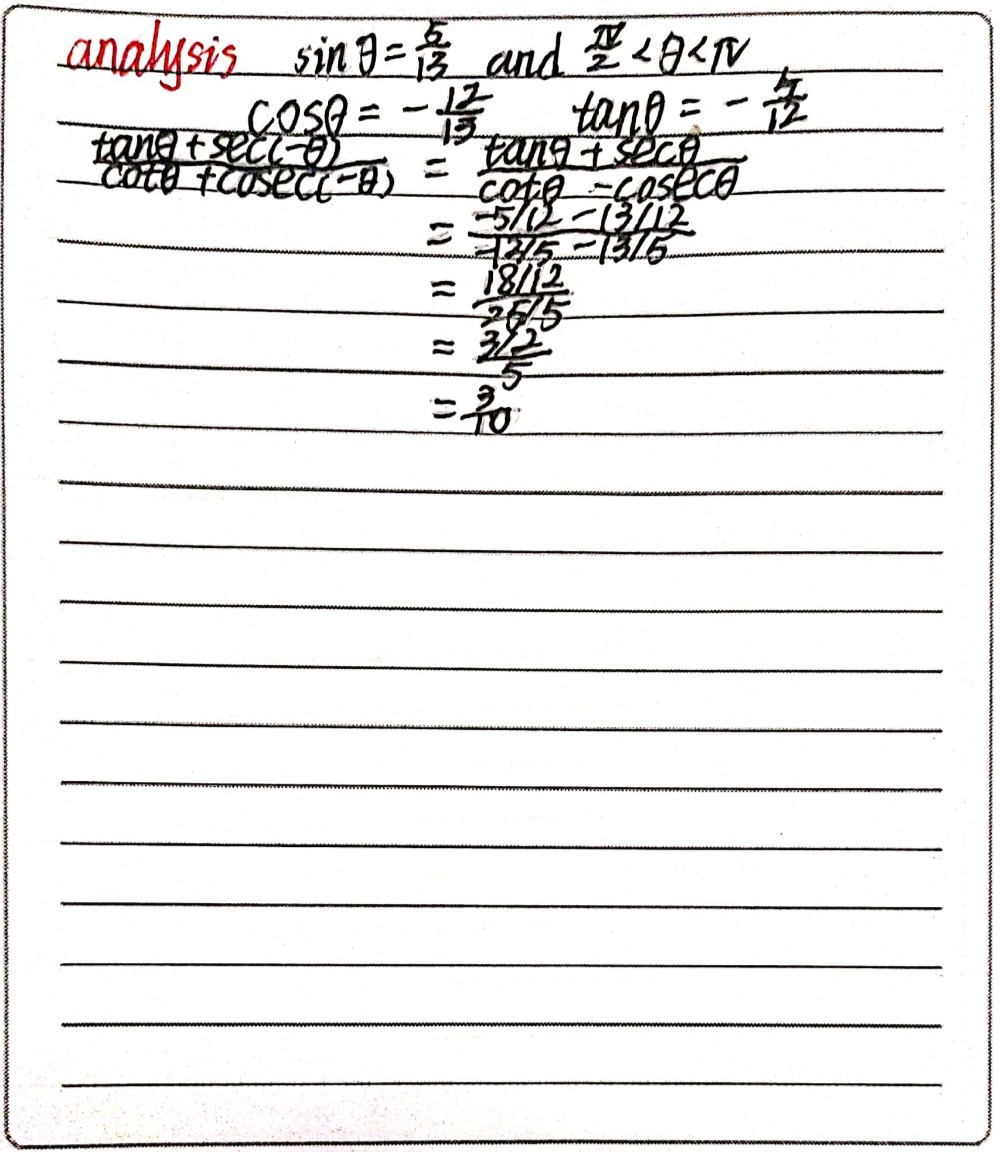 analysis sin θ = 5/13 and π/2 < θ < π
cosθ = - 12/13 tanθ = - 5/12
tanθ + sec(-θ) / cotθ + cosec(-θ) = tanθ + secθ / cotθ - cosecθ
= -5/12 - 13/12 / -12/5 - 13/5
= 18/12 / 25/5
= 3/2 / 5
= 3/10